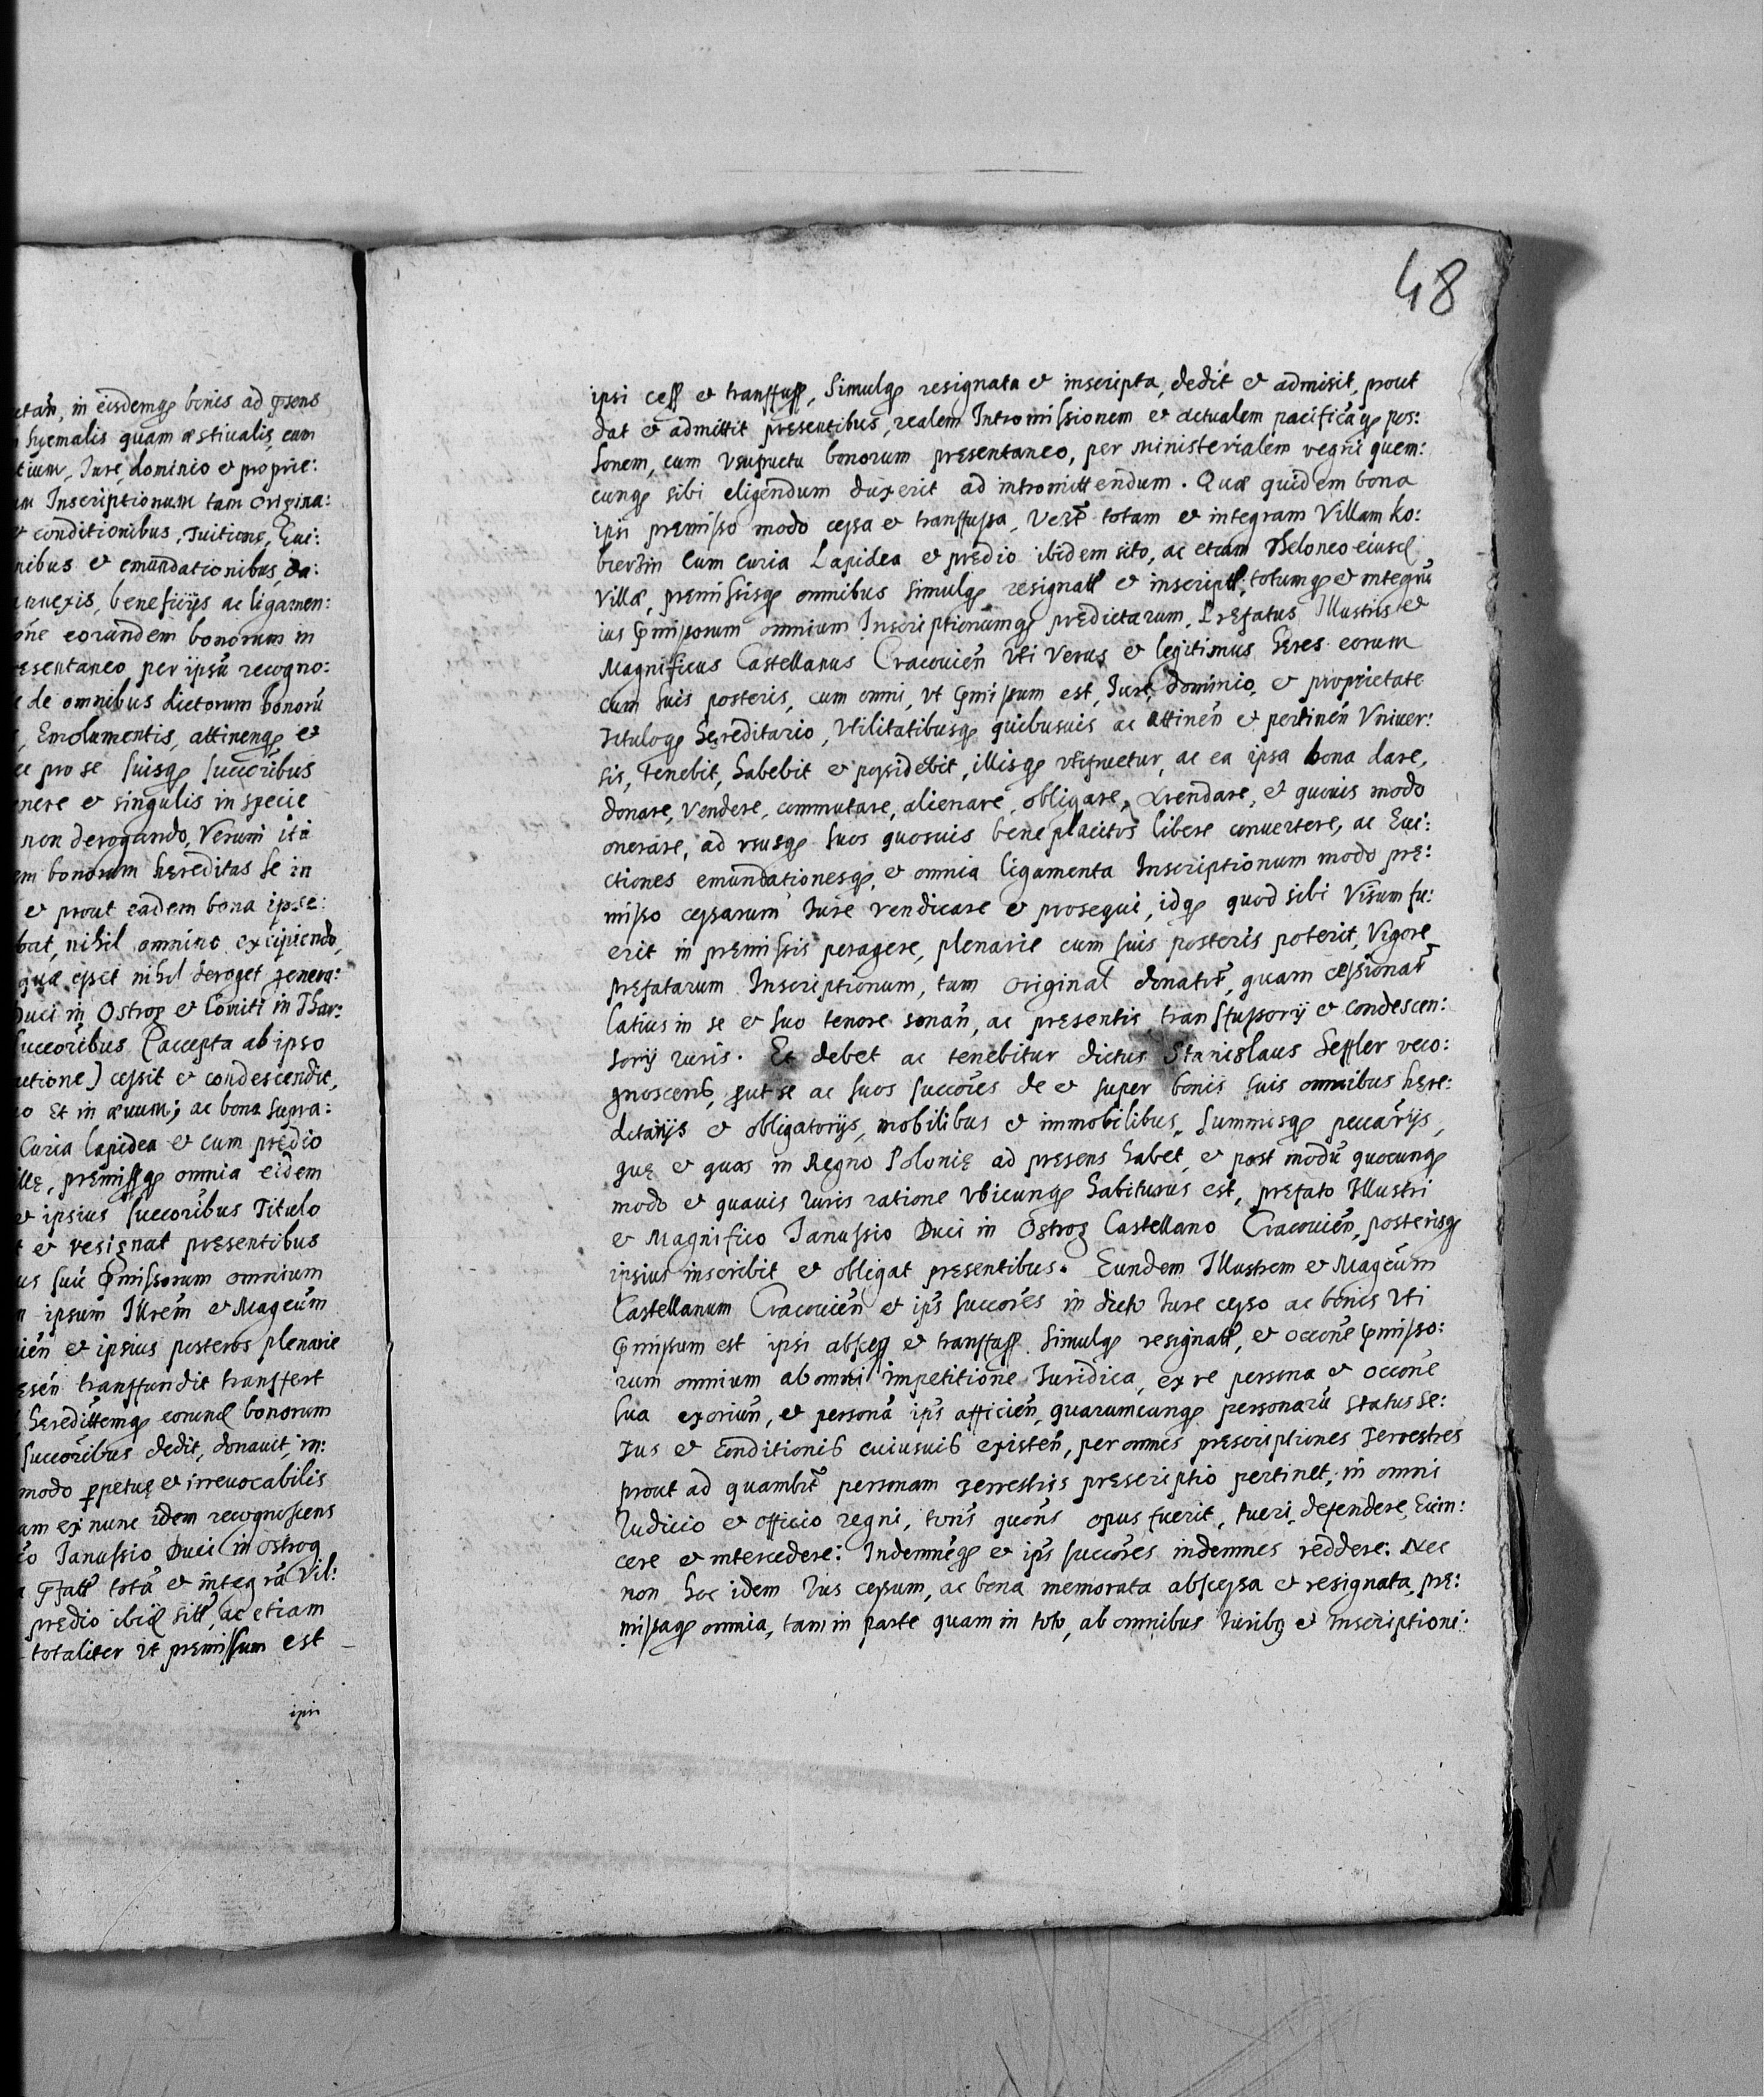 etam, in eisdemq₃ bonis ad p̃sens
hyemalis quam æstiualis, cum
tium, Iure, dominio et proprie:
Inscriptionum tam Origina:
conditionibus, Tuitione, Eui:
nibus et emundationibus, da:
annexis, beneficijs ac ligamen:
one eorundem bonorum in
esentaneo per ipsũ recogno:
de omnibus dictorum bonorũ
Emolumentis, attinenq₃ et
pro se suisq₃ succōribus
nere et singulis in specie
non derogando, Verum ita
bonorum hęreditas se in
et prout eadem bona ipse:
bat, nihil omnino excipiendo,
quæ esset nihil deroget genera:
Duci in Ostrog et Comiti in Thar:
succoribus (accepta ab ipso
utione) cessit et condescendit,
Et in æuum; ac bona supra:
Curia lapidea et cum prędio
illę, pręmissq₃ omnia eidem
et ipsius succōribus Titulo
et resignat pręsentibus
us sui p̃missorum omnium
ipsum Illrẽm et Magcũm
iẽn et ipsius posteros plenarie
esẽn transfundit transfert
hereditẽmq₃ eorund bonorum
succōribus dedit, donauit, in:
modo p̱petuę et irreuocabilis
am ex nunc idem recognoscens
Ianussio Duci in Ostrog
p̃fatt totã et integrã Vil:
prędio ibid sitt, ac etiam
totaliter ut pręmissum est
ipsi
48
ipsi cess et transfuss, Simulq₃ resignata et inscripta, dedit et admisit, prout
dat et admittit pręsentibus, realem Intromissionem et actualem pacificãq₃ pos:
sonem, cum vsufructu bonorum pręsentaneo, per ministerialem regni quem:
cunq₃ sibi eligendum duxerit ad intromittendum. Quæ quidem bona
ipsi pręmisso modo cessa et transfussa, Vertr̃ totam et integram Villam Ko:
bierzin Cum curia Lapidea et prędio ibidem sito, ac etiam Theloneo eiusd
Villæ, pręmissisq₃ omnibus simulq₃ resignatt et inscriptt, totumq₃ et integrũ
ius p̃missorum omnium Inscriptionumq₃ prędictarum, Pręfatus Illustris et
Magnificus Castellanus Cracouieñ Vti Verus et legitimus heres eorum
cum suis posteris, cum omni, vt p̃missum est, Iure, dominio, et proprietate
Tituloq₃ hereditario, Vtilitatibusq₃ quibusuis ac attineñ et pertineñ Vniuer:
sis, Tenebit, habebit et possidebit, illisq₃ vtifruetur, ac ea ipsa bona dare,
donare, Vendere, commutare, alienare, obligare, Arendare, et quouis modo
onerare, ad vsusq₃ suos quosuis beneplacitos libere conuertere, ac Eui:
ctiones emundationesq₃, et omnia ligamenta Inscriptionum modo prę:
misso cessarum Iure vendicare et prosequi, idq₃ quod sibi Visum fu:
erit in pręmissis peragere, plenarie cum suis posteris poterit, Vigore
pręfatarum Inscriptionum, tam original donatĩr, quam cessionar̃
latius in se et suo tenore sonañ, ac pręsentis transfussorij et condescen:
sorij iuris. Et debet ac tenebitur dictus Stanislaus Seffler reco:
gnoscens, qut se ac suos succōres de et super bonis suis omnibus hęre:
ditarijs et obligatorijs, mobilibus et immobilibus, summisq₃ peccarijs,
quę et quas in Regno Polonię ad pręsens habet, et post modũ quocunq₃
modo et quauis Iuris ratione vbicunq₃ habiturus est, pręfato Illustri
et Magnifico Ianussio Duci in Ostrog Castellano Cracouieñ, posterisq₃
ipsius inscribit et obligat pręsentibus. Eundem Illustrem et Magcũm
Castellanum Cracouieñ et ip̃s succōres in dicto Iure cesso ac bonis Vti
p̃missum est ipsi abscess et transfuss. Simulq₃ resignatt, et occōne p̃misso:
rum omnium ab omni impetitione Iuridica, ex re persona et occōne
sua exoriuñ, et personã ip̃s afficieñ, quarumcunq₃ personarũ status se:
xus et conditionis cuiusuis existeñ, per omnes pręscriptiones Terrestres
prout ad quamlbt̃ personam Terrestris pręscriptio pertinet, in omni
Iudicio et officio regni, toñs quoñs opus fuerit, tueri, defendere, Euin:
cere et intercedere: Indemnẽq₃ et ip̃s succōres indemnes reddere: Nec
non hoc idem Ius cessum, ac bona memorata abscessa et resignata, prę:
missaq₃ omnia, tam in parte quam in toto, ab omnibus Iuribq₃ et Inscriptioni: